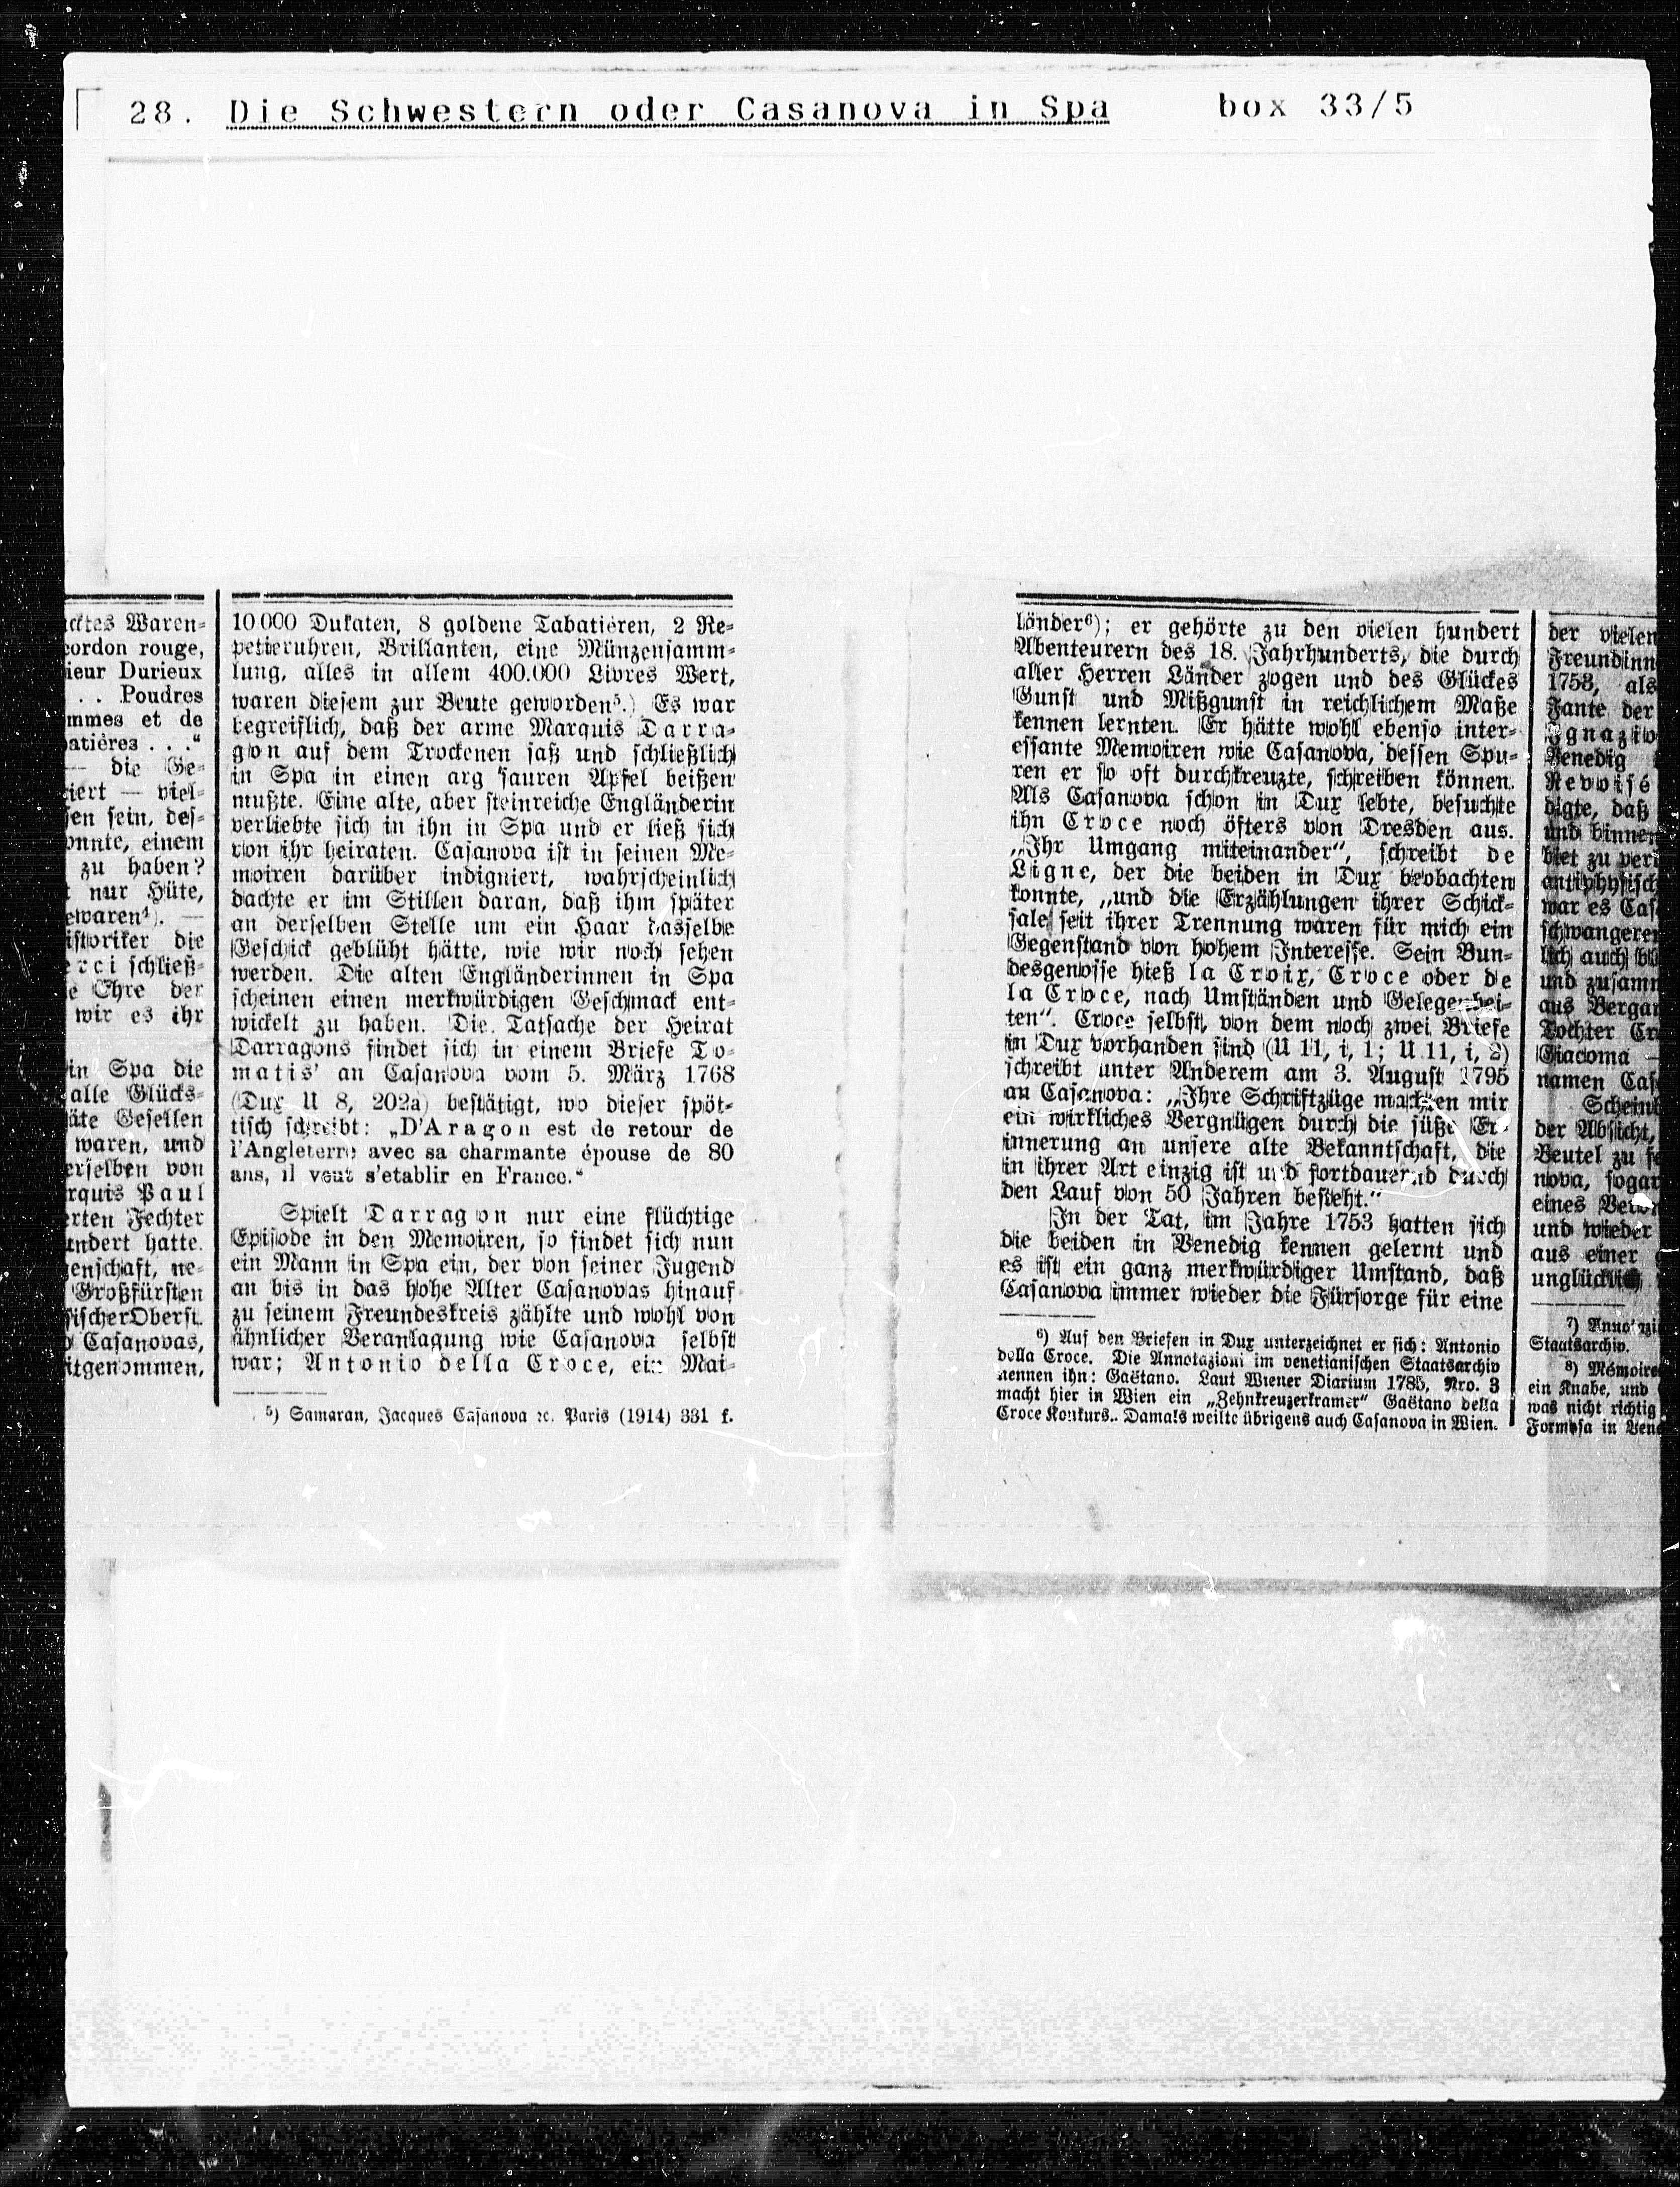 28. Die Schwestern oder Casanova in Spa box 33/5
cktes Waren-
cordon rouge,
ieur Durieux
. . Poudres
mmes et de
batières . . .“
— die Ge-
ziert — viel-
sen sein, des-
onnte, einem
zu haben?
t nur Hüte,
ewaren⁴). —
istoriker die
erci schließ-
e Ehre der
wir es ihr
in Spa die
alle Glücks-
äte Gesellen
waren, und
erselben von
rquis Paul
erten Fechter
undert hatte.
genschaft, ne-
Großfürsten
sischer Oberst.
Casanovas,
itgenommen,
10 000 Dukaten, 8 goldene Tabatièren, 2 Re-
petieruhren, Brillanten, eine Münzensamm-
lung, alles in allem 400.000 Livres Wert,
waren diesem zur Beute geworden⁵.) Es war
begreiflich, daß der arme Marquis Darra-
gon auf dem Trockenen saß und schließlich
in Spa in einen arg sauren Apfel beißen
mußte. Eine alte, aber steinreiche Engländerin
verliebte sich in ihn in Spa und er ließ sich
von ihr heiraten. Casanova ist in seinen Me-
moiren darüber indigniert, wahrscheinlich
dachte er im Stillen daran, daß ihm später
an derselben Stelle um ein Haar dasselbe
Geschick geblüht hätte, wie wir noch sehen
werden. Die alten Engländerinnen in Spa
scheinen einen merkwürdigen Geschmack ent-
wickelt zu haben. Die Tatsache der Heirat
Darragons findet sich in einem Briefe To-
matis' an Casanova vom 5. März 1768
(Dux U 8, 202a) bestätigt, wo dieser spöt-
tisch schreibt: „D'Aragon est de retour de
l'Angleterre avec sa charmante épouse de 80
ans, il veut s'etablir en France.“
Spielt Darragon nur eine flüchtige
Episode in den Memoiren, so findet sich nun
ein Mann in Spa ein, der von seiner Jugend
an bis in das hohe Alter Casanovas hinauf
zu seinem Freundeskreis zählte und wohl von
ähnlicher Veranlagung wie Casanova selbst
war; Antonio della Croce, ein Mai-
⁵) Samaran, Jacques Casanova ꝛc. Paris (1914) 331 f.
länder⁶); er gehörte zu den vielen hundert
Abenteurern des 18. Jahrhunderts, die durch
aller Herren Länder zogen und des Glückes
Gunst und Mißgunst in reichlichem Maße
kennen lernten. Er hätte wohl ebenso inter-
essante Memoiren wie Casanova, dessen Spu-
ren er so oft durchkreuzte, schreiben können.
Als Casanova schon in Dux lebte, besuchte
ihn Croce noch öfters von Dresden aus.
„Ihr Umgang miteinander“, schreibt de
Ligne, der die beiden in Dux beobachten
konnte, „und die Erzählungen ihrer Schick-
sale seit ihrer Trennung waren für mich ein
Gegenstand von hohem Interesse. Sein Bun-
desgenosse hieß la Croix, Croce oder de
la Croce, nach Umständen und Gelegenhei-
ten“. Croce selbst, von dem noch zwei Briefe
in Dux vorhanden sind (U 11, i, 1; U 11, i, 2)
schreibt unter Anderem am 3. August 1795
an Casanova: „Ihre Schriftzüge machen mir
ein wirkliches Vergnügen durch die süße Er-
innerung an unsere alte Bekanntschaft, die
in ihrer Art einzig ist und fortdauernd durch
den Lauf von 50 Jahren besteht.“
In der Tat, im Jahre 1753 hatten sich
die beiden in Venedig kennen gelernt und
es ist ein ganz merkwürdiger Umstand, daß
Casanova immer wieder die Fürsorge für eine
⁶) Auf den Briefen in Dux unterzeichnet er sich: Antonio
della Croce. Die Annotazioni im venetianischen Staatsarchiv
nennen ihn: Gaëtano. Laut Wiener Diarium 1785, Nro. 3
macht hier in Wien ein „Zehnkreuzerkramer“ Gaëtano della
Croce Konkurs.. Damals weilte übrigens auch Casanova in Wien.
der vielen
Freundinn
1753, als
Fante der
Ignazio
Venedig
Revoisé
digte, daß
und binnen
biet zu verl
antiphysisch
war es Cas
schwangeren
lich auch
und zusamm
aus Bergan
Tochter Cr
Giacoma —
namen Cas
Scheint
der Absicht,
Beutel zu
nova, sogar
eines
und wieder
aus einer
unglücklich
⁷) Anno
Staatsarchiv.
⁸) Mémoire
ein Knabe, und
was nicht richtig
Formosa in Vene